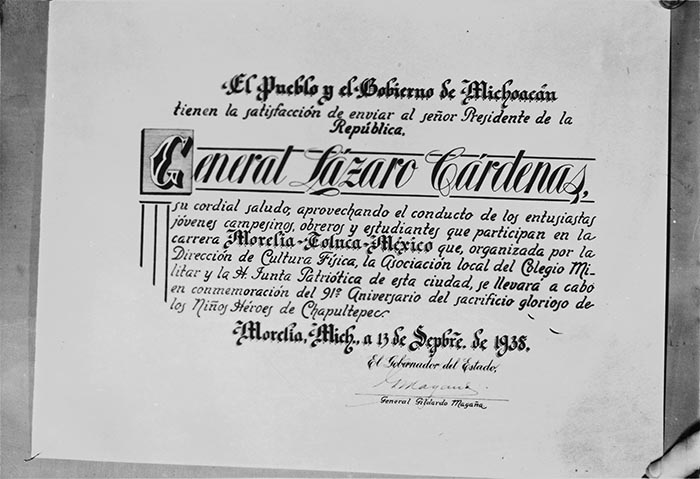 El Pueblo y el Gobierno de Michoacán
tienen la satisfacción de enviar al señor Presidente de la
República,
General Lázaro Cárdenas,
su cordial saludo, aprovechando el conducto de los entusiastas
jóvenes campesinos, obreros y estudiantes que participan en la
carrera Morelia-Toluca-México que, organizada por la
Dirección de Cultura Física, la Asociación local del Colegio Mi-
litar y la H. Junta Patriótica de esta ciudad, se llevará a cabo
en conmemoración del 91º Aniversario del sacrificio glorioso de
los Niños Héroes de Chapultepec
Morelia, Mich., a 13 de Sepbre. de 1938.
El Gobernador del Estado,
Magaña
General Gildardo Magaña